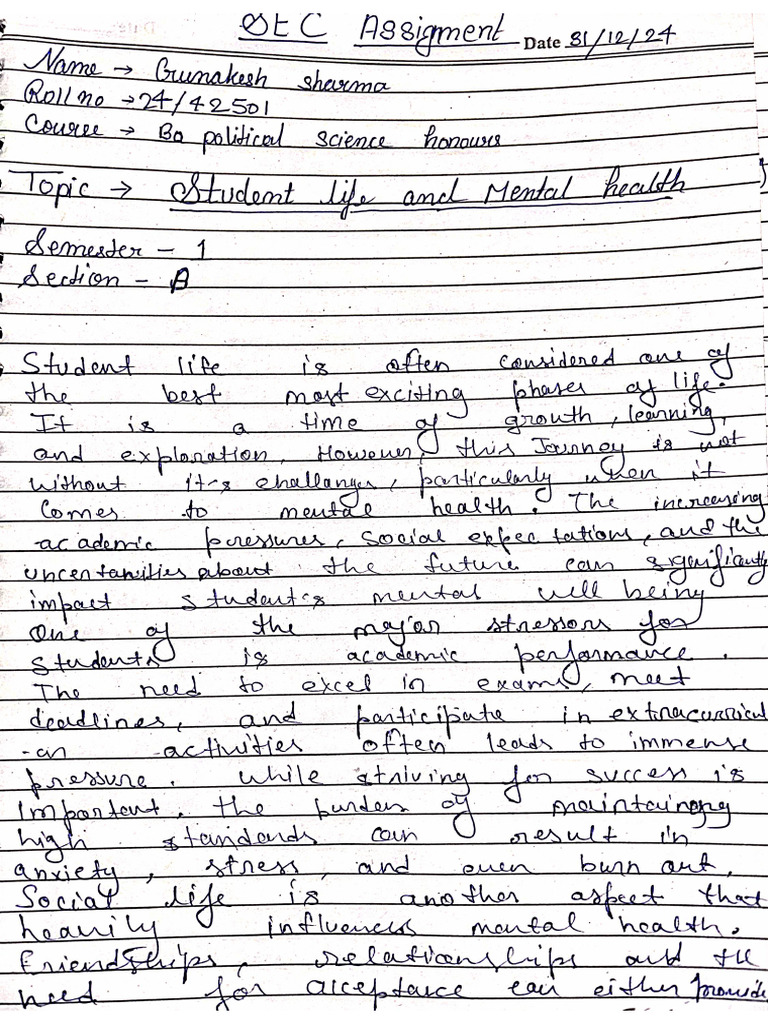 SEC Assigment Date 31/12/24
Name → Gunakesh sharma
Roll no → 24/42501
Course → Ba political science honours
Topic → Student life and Mental health
Semester - 1
Section - B
Student life is often considered one of
the best most exciting phases of life.
It is a time of growth, learning,
and exploration, However, this Journey is not
without it's challanges, particularly when it
comes to mental health. The increasing
academic pressures, social expectations, and the
uncertanities about the future can significantly
impact student's mental well being
One of the major stressors for
students is academic performance.
The need to excel in exams, meet
deadlines, and participate in extracurricul
-an -activities often leads to immense
pressure. while striving for success is
important, the burden of maintainging
high standards can result in
anxiety, stress, and even burn out.
Social life is another aspect that
heavily influences mental health.
Friendships, relationships and the
need for acceptance can either provide